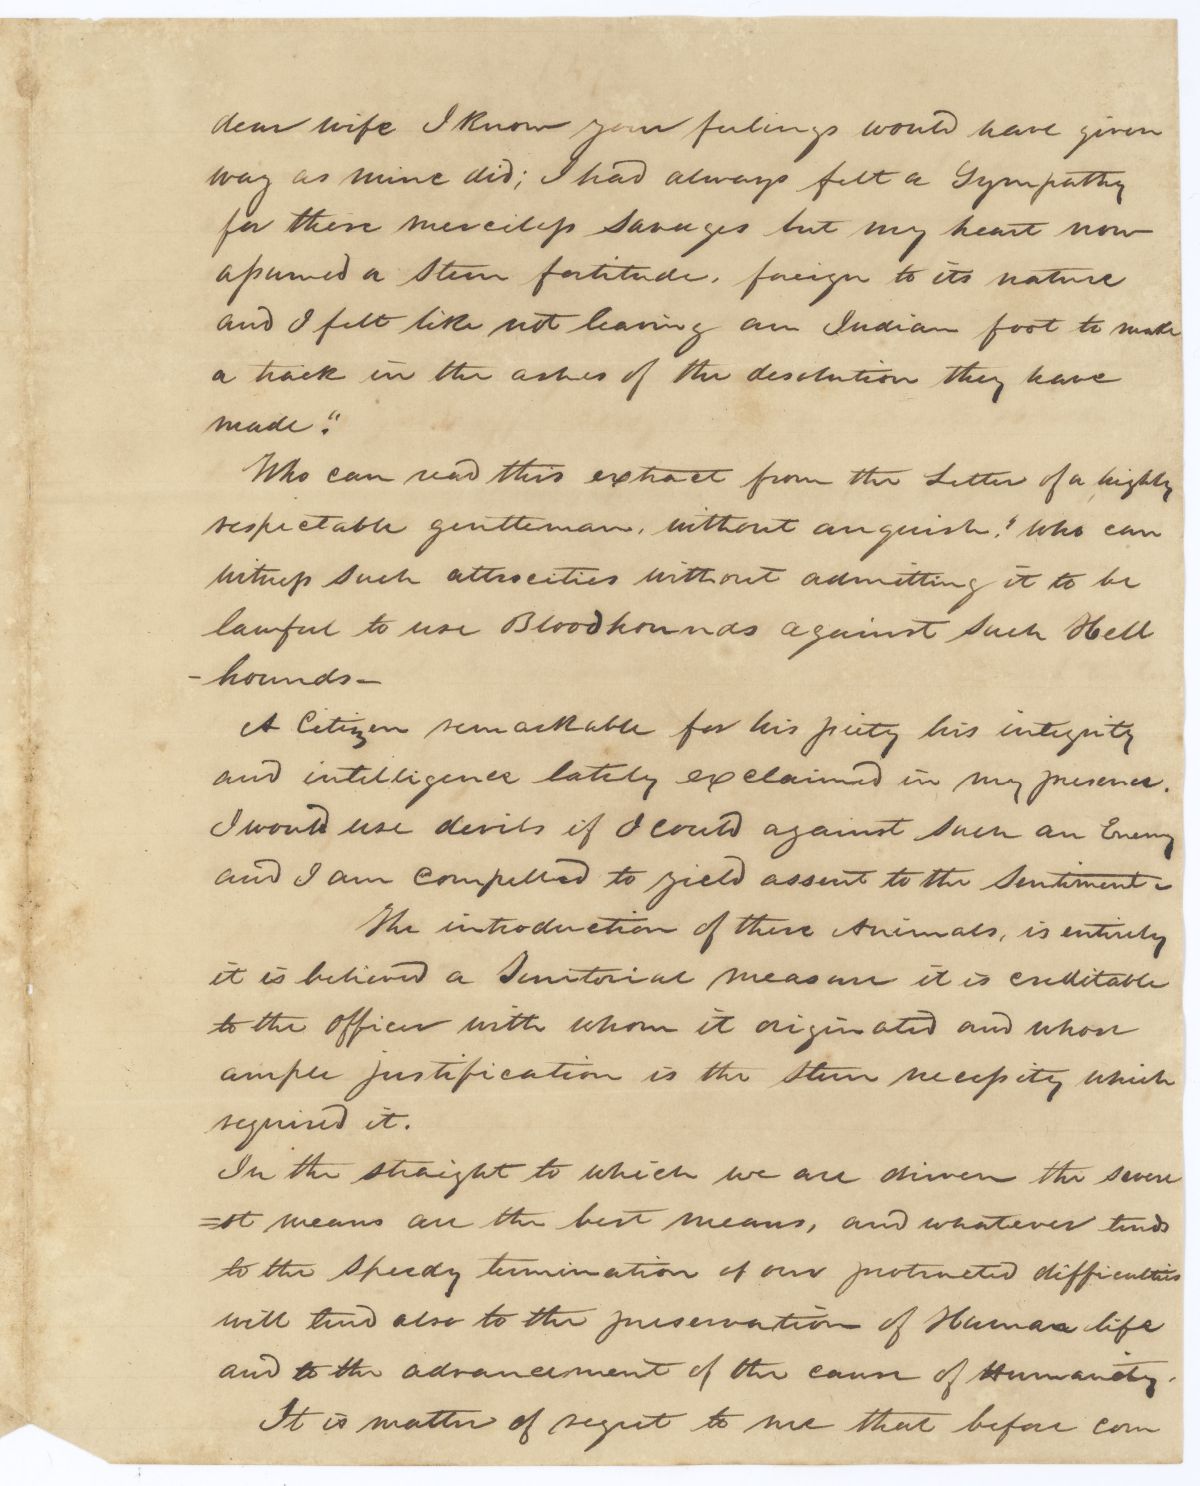 dear wife I know your feelings would have given
way as mine did; I had always felt a Sympathy
for these merciless Savages but my heart now
assumed a Stern fortitude, foreign to its nature
and I felt like not leaving an Indian foot to make
a track in the ashes of the desolution they have
made."
Who can read this extract from the Letter of a highly
respectable gentleman, without anguish? who can
witness such attrocities without admitting it to be
lawful to use Bloodhounds against such Hell
-hounds-
A Citizen remarkable for his piety his integrity
and intelligence lately exclaimed in my presence.
I would use devils if I could against such an Enemy
and I am compelled to yield assent to the Sentiment-
The introduction of these Animals, is entirely
it is believed a Teritorial measure it is creditable
to the officer with whom it originated and whose
ample justification is the Stern necessity which
required it.
In the straight to which we are driven the severe
=st means are the best means, and whatever tends
to the Speedy termination of our protracted difficulties
will tend also to the preservation of Human life
and to the advancement of the cause of Humanity.
It is matter of regret to me that before com